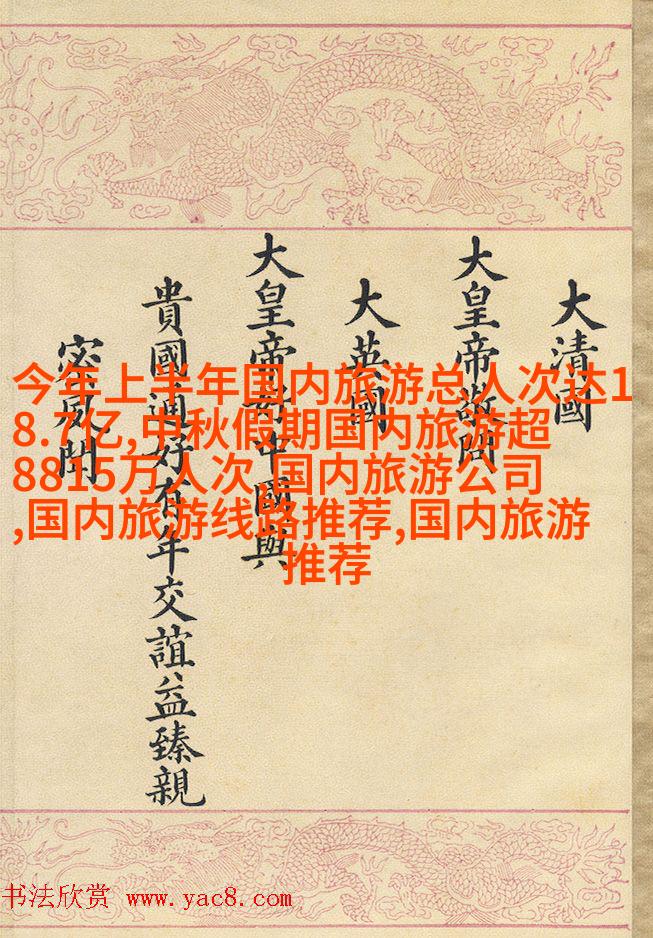 大清國
大皇帝敬問
大英國
大皇帝好中國與
貴國通好有年交誼益臻親
密夙聞
今年上半年国内旅游总人次达1
8.7亿,中秋假期国内旅游超
8815万人次,国内旅游公司
,国内旅游线路推荐,国内旅游
推荐
书法欣赏 www.yac8.com